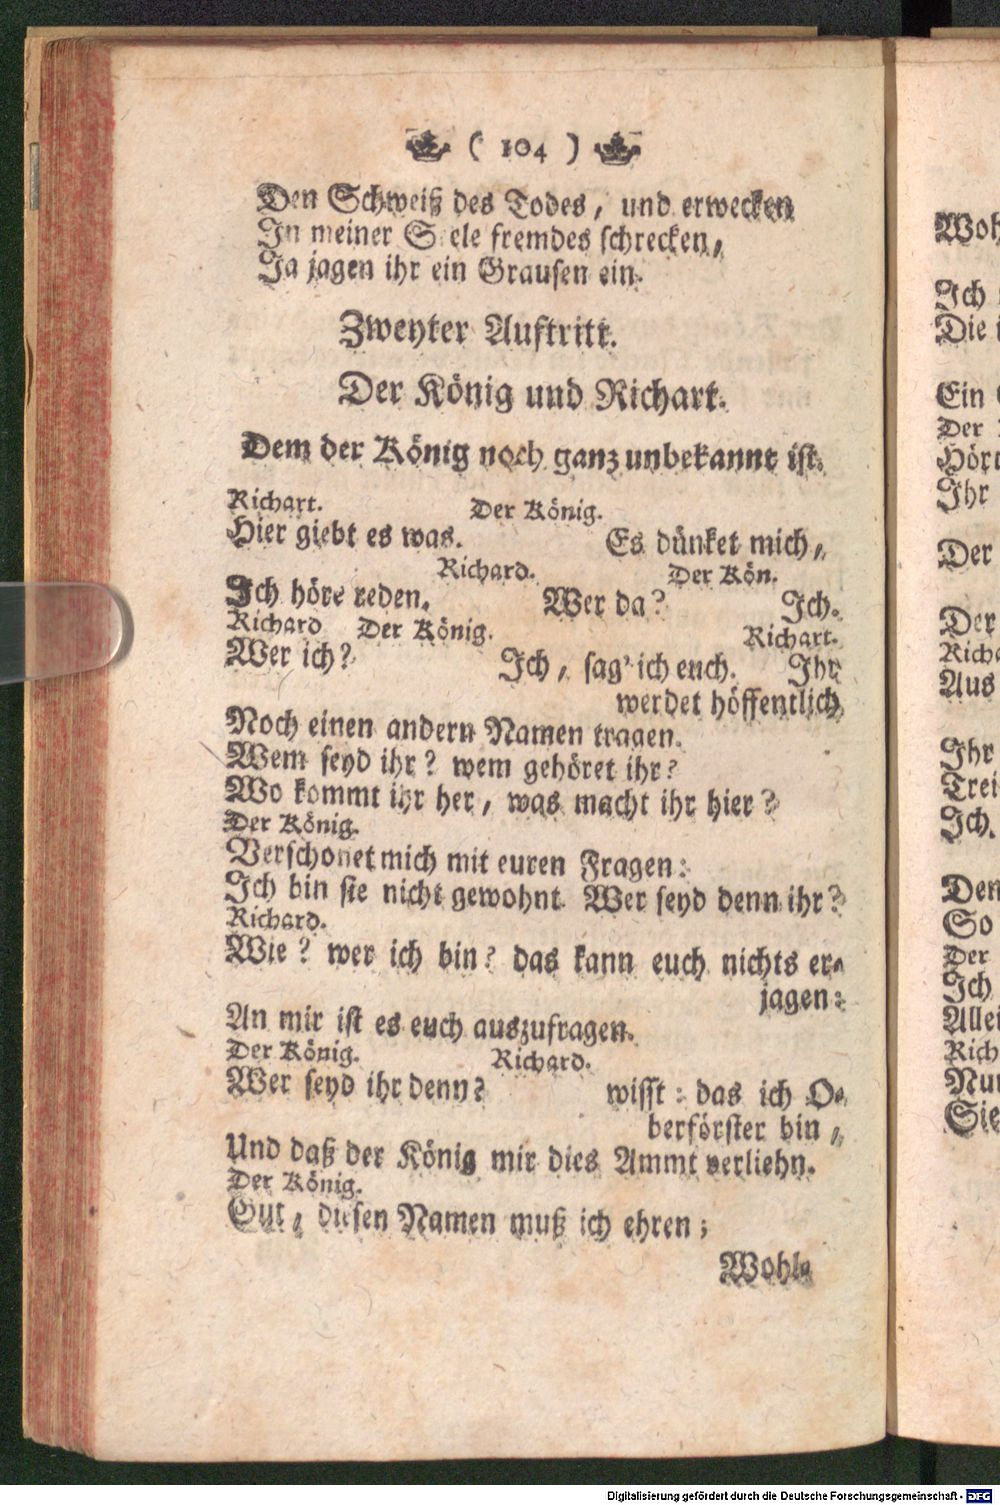 ( 104 )
Den Schweiß des Todes, und erwecken
In meiner Seele fremdes schrecken,
Ja jagen ihr ein Grausen ein.
Zweyter Auftritt.
Der König und Richart.
Dem der König noch ganz unbekannt ist.
Richart. Der König.
Hier giebt es was. Es dünket mich,
Richard. Der Kön.
Ich höre reden. Wer da? Ich.
Richard Der König. Richart.
Wer ich? Ich, sag' ich euch. Ihr
werdet höffentlich
Noch einen andern Namen tragen.
Wem seyd ihr? wem gehöret ihr?
Wo kommt ihr her, was macht ihr hier?
Der König.
Verschonet mich mit euren Fragen:
Ich bin sie nicht gewohnt. Wer seyd denn ihr?
Richard.
Wie? wer ich bin? das kann euch nichts er-
jagen:
An mir ist es euch auszufragen.
Der König. Richard.
Wer seyd ihr denn? wisst: das ich O-
berförster bin,
Und daß der König mir dies Ammt verliehn.
Der König.
Gut, diesen Namen muß ich ehren;
Wohl-
Woh
Ich
Die i
Ein
Der
Hört
Ihr
Der
Der
Richa
Aus
Ihr
Trei
Ich.
Den
So
Der
Ich
Allei
Rich
Nun
Sie
Digitalisierung gefördert durch die Deutsche Forschungsgemeinschaft - DFG